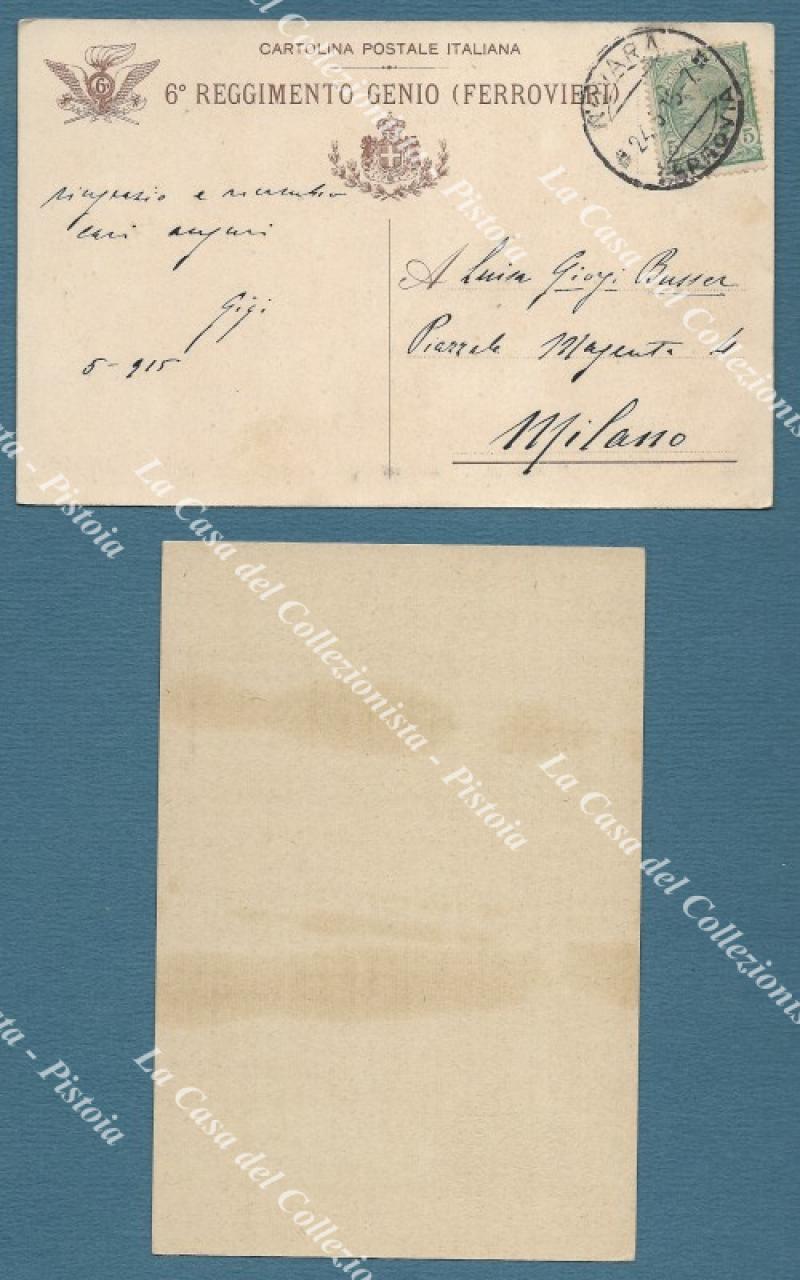 CARTOLINA POSTALE ITALIANA
6
6° REGGIMENTO GENIO (FERROVIERI)
NOVARA
FERROVIA
5 5
ringrazio e ricambio
cari auguri
Gigi
5-915
A Luisa Giorgi Busser
Piazzale Magenta 4
Milano
La Casa del Collezionista - Pistoia
La Casa del Collezionista - Pistoia
La Casa del Collezionista
La Casa del Collezionista - Pistoia
La Casa del Collezionista
La Casa del Collezionista